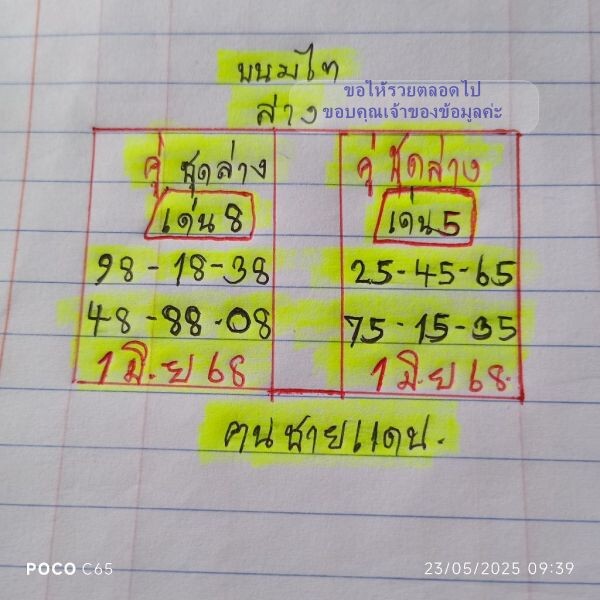 ขนมไท
ล่าง
ขอให้รวยตลอดไป
ขอบคุณเจ้าของข้อมูลค่ะ
คู่ ชุดล่าง
เด่น 8
98-18-38
48-88-08
1 มิ.ย 68
คู่ ชุดล่าง
เด่น 5
25-45-65
75-15-35
1 มิ.ย 68.
ฅนชายแดน.
POCO C65
23/05/2025 09:39